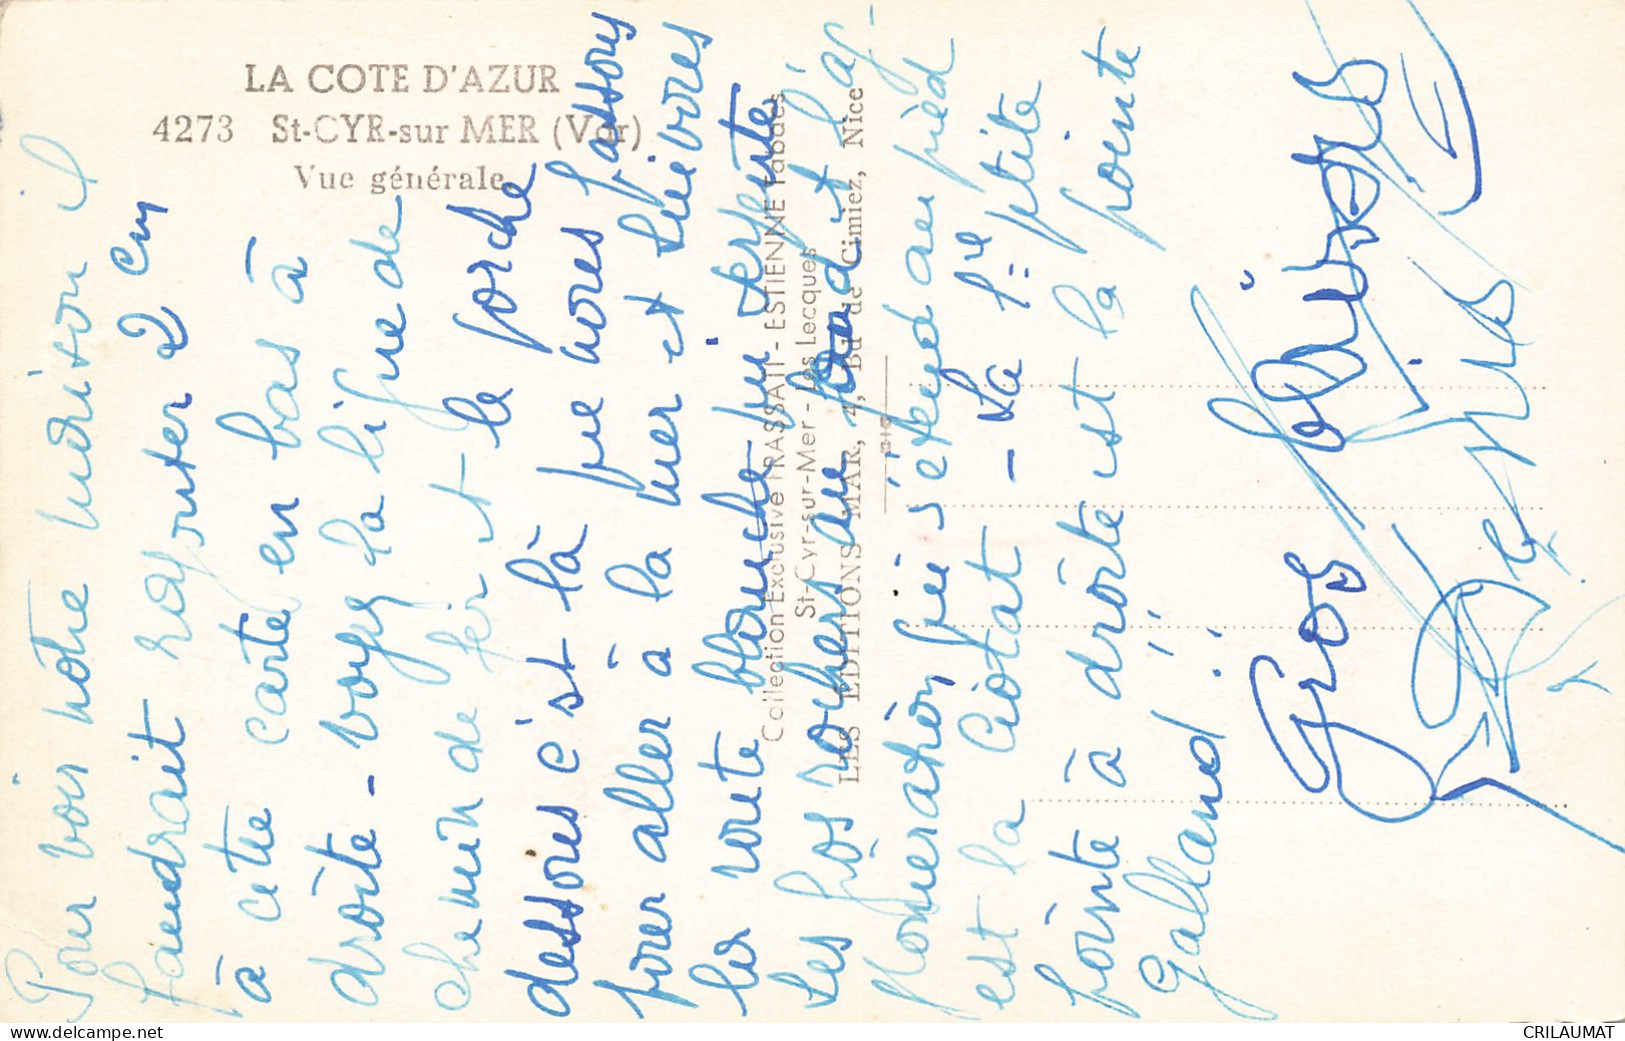 LA COTE D'AZUR
4273 St-CYR-sur MER (Var)
Vue générale
Collection Exclusive FRASSATI - ESTIENNE Tabacs
St-Cyr-sur-Mer - Les Lecques
LES EDITIONS MAR, 4, Bd de Cimiez, Nice
Pour voir notre maison il
faudrait rajouter 2 cm
à cette carte en bas à
droite - voyez la ligne de
chemin de fer et le porche
dessous c'est là que nous passons
pour aller à la mer et suivons
la route blanche qui serpente
Les gros rochers au fond et l'ag-
glomération qui s'étend au pied
est la Ciotat - La 1re ptite
pointe à droite est la pointe
Galland !!
Gros